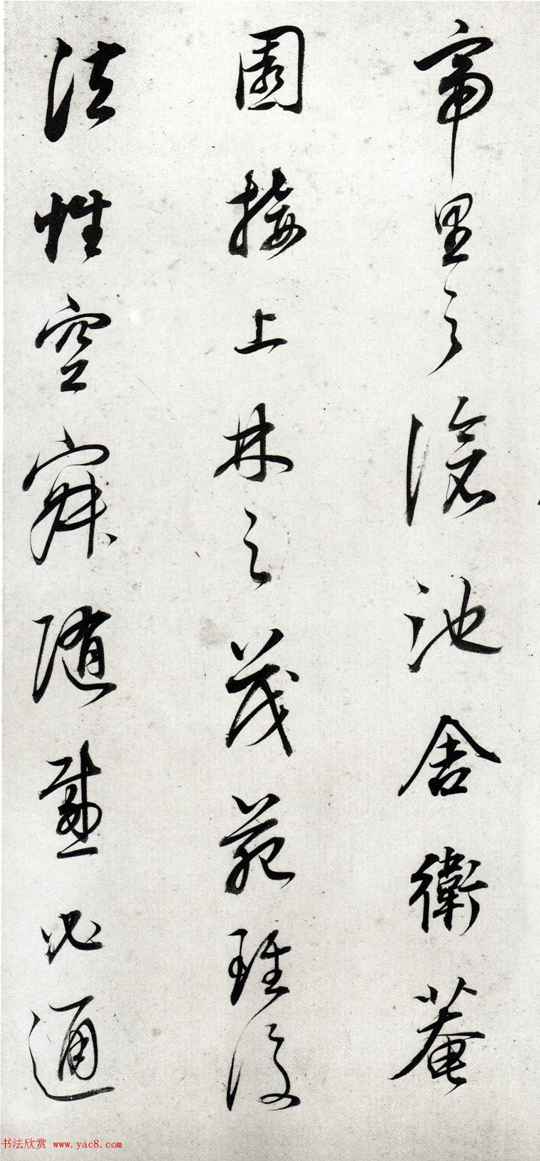 帝里之滄池舍衛菴
園接上林之茂苑雖復
法性空寂随感必通
书法欣赏 www.yac8.com